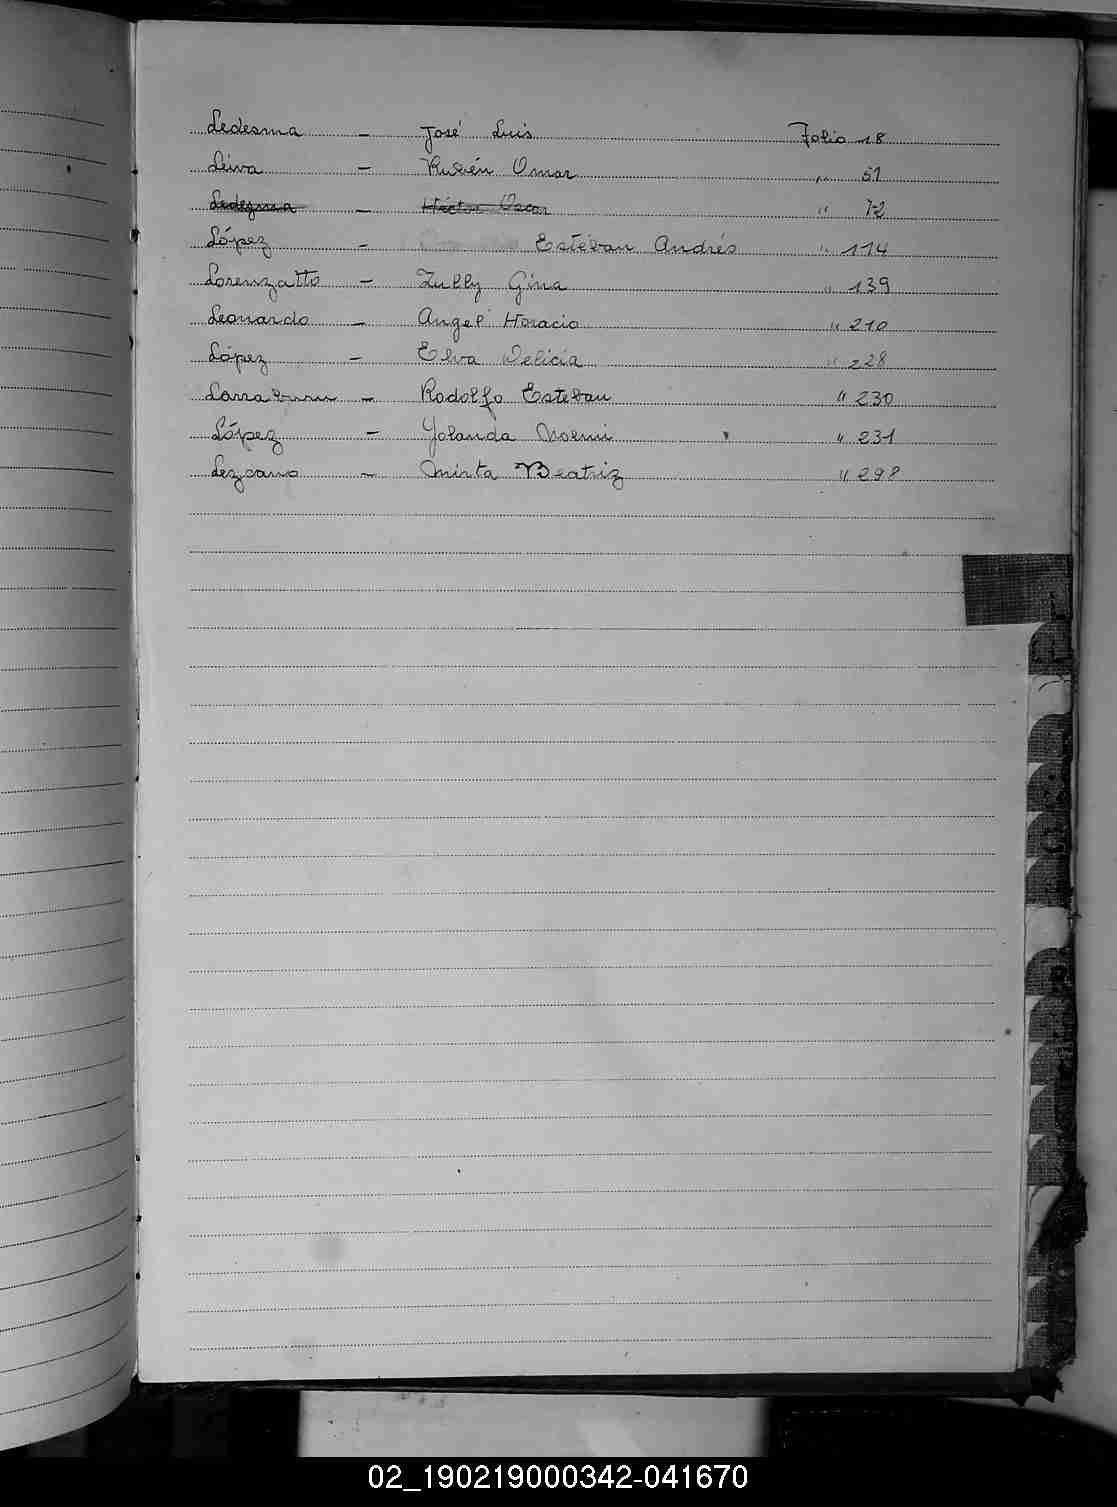 Ledesma - José Luis Folio 18
Leiva - Rubén Omar " 51
Ledezma - Héctor Oscar " 72
López - Esteban Andrés " 114
Lorenzatto - Zully Gina " 139
Leonardo - Angel Horacio " 210
López - Elva Delicia " 228
- Rodolfo Esteban " 230
López - Yolanda Noemi " 231
Lezcano - Mirta Beatriz " 298
02_190219000342-041670